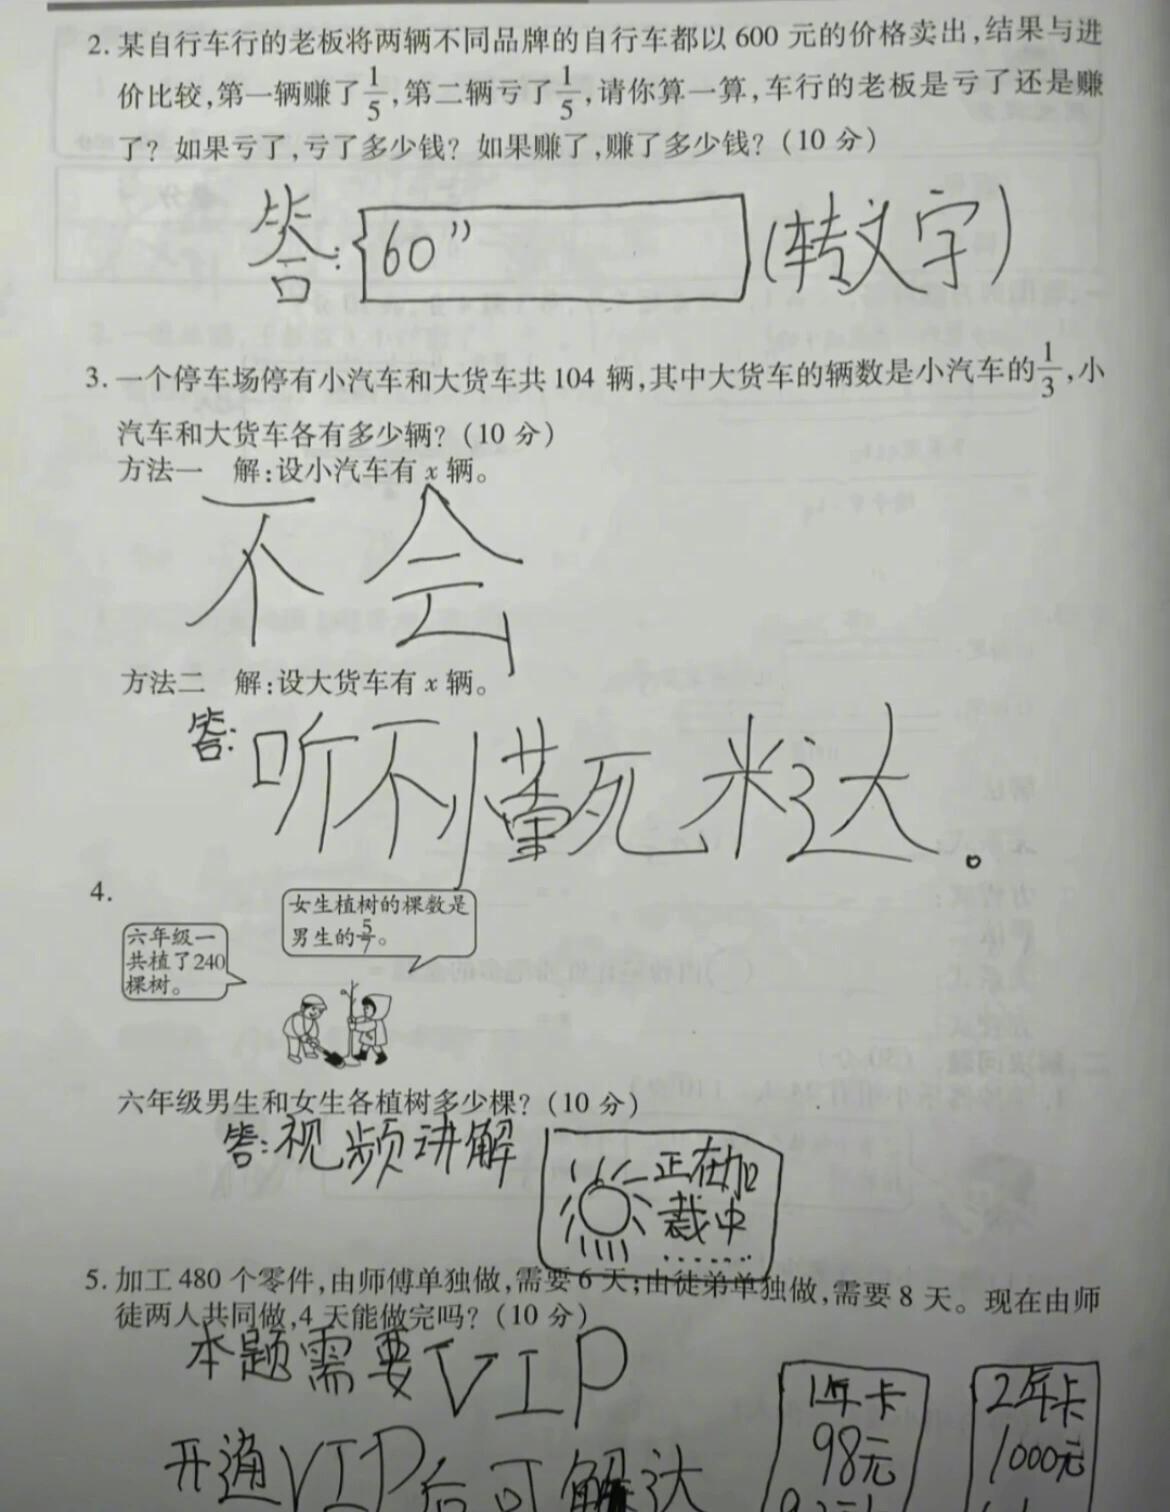 2. 某自行车行的老板将两辆不同品牌的自行车都以 600 元的价格卖出,结果与进
价比较,第一辆赚了1/5,第二辆亏了1/5,请你算一算,车行的老板是亏了还是赚
了? 如果亏了,亏了多少钱? 如果赚了,赚了多少钱? (10 分)
答: 60” (转文字)
3. 一个停车场停有小汽车和大货车共 104 辆,其中大货车的辆数是小汽车的1/3,小
汽车和大货车各有多少辆? (10 分)
方法一 解:设小汽车有 x 辆。
不会
方法二 解:设大货车有 x 辆。
答: 听不懂死米达。
4.
女生植树的棵数是
男生的5/7。
六年级一
共植了240
棵树。
六年级男生和女生各植树多少棵? (10 分)
答: 视频讲解
正在加
裁中
……
5. 加工 480 个零件,由师傅单独做,需要 6 天;由徒弟单独做,需要 8 天。现在由师
徒两人共同做,4 天能做完吗? (10 分)
本题需要VIP
1年卡
98元
2年卡
1000元
开通VIP后可解达